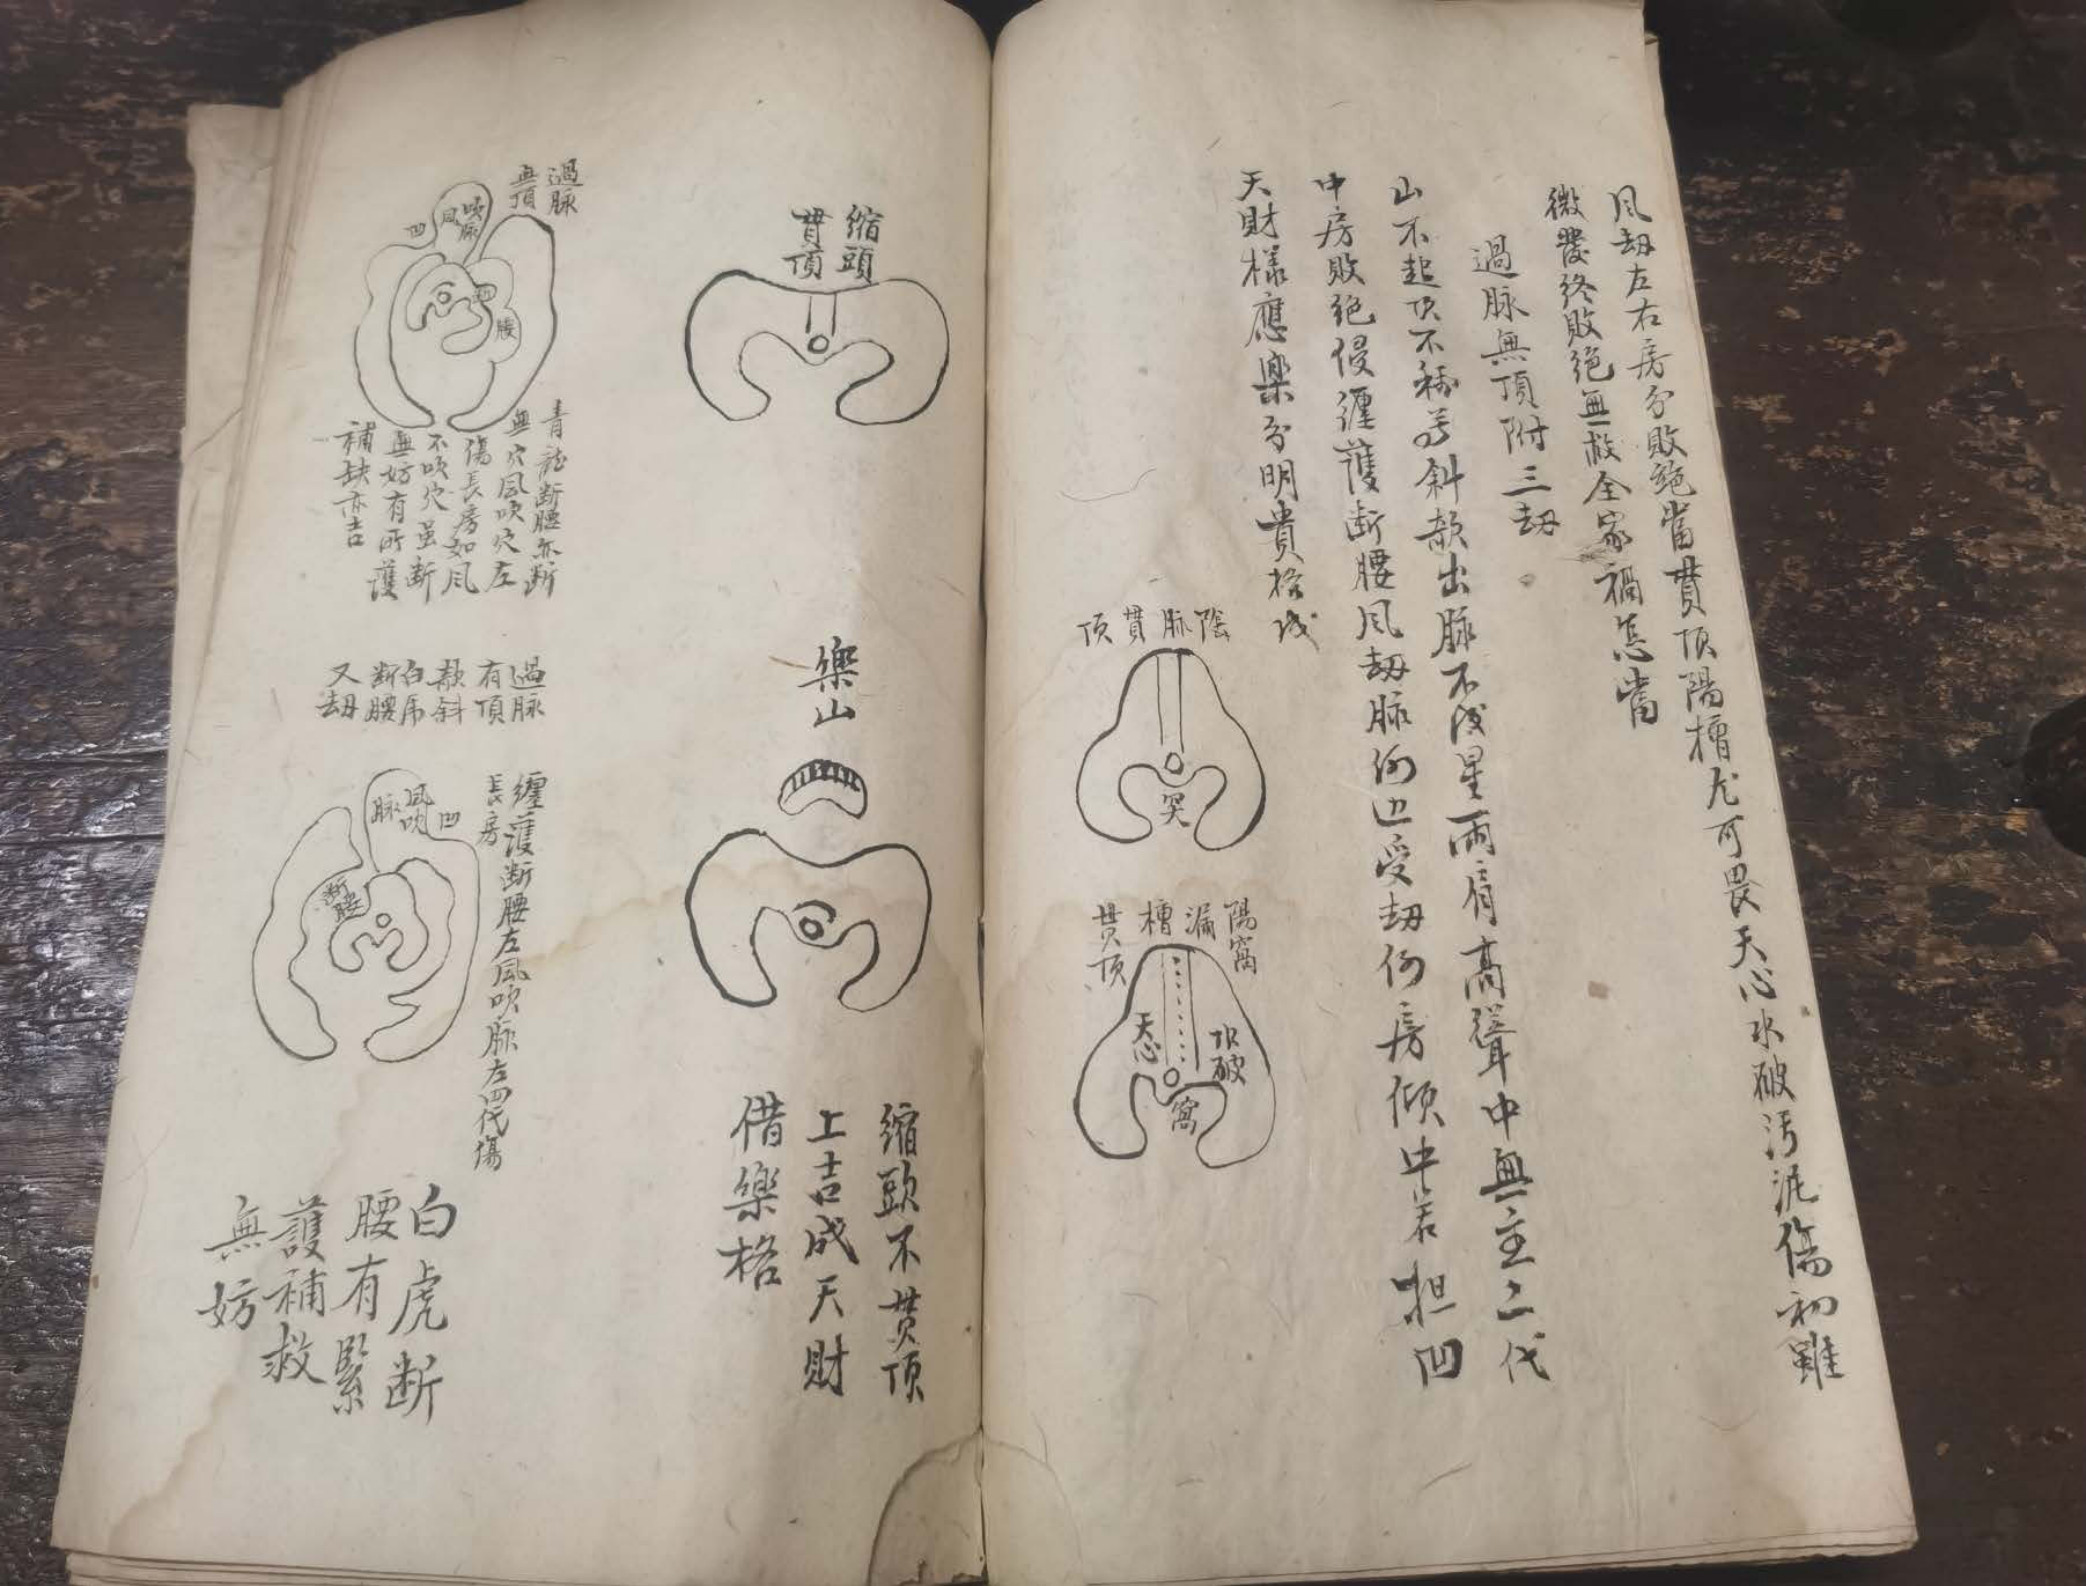 風刼左右房分敗絶當貫頂陽槽尤可畏天心水破污泥傷初雖
微發終敗絕無救全家禍怎當
過脉無頂附三刼
山不起頂不秀斜欹出脉不成星兩肩高聳中無主二代
中房敗絕侵纏護断腰風刼脉何边受刼何房傾中若担凹
天財樣應樂分明貴格成
陰脉貫頂
突
陽窩漏槽貫頂
天心
頂破
窩
縮頭
貫頂
樂山
縮頭不貫頂
上吉成天財
借樂格
過脉
無頂
吹脉
風
凹
刼
腰
青龍断腰亦断
無穴風吹穴左
傷長房如風
不吹穴虽断
無妨有所護
補缺亦吉
過脉
有頂
欹斜
白虎
断腰
又刼
風吹
脉
凹
断腰
纏護断腰左風吹脉左四代傷
長房
白虎断
腰有緊
護補救
無妨